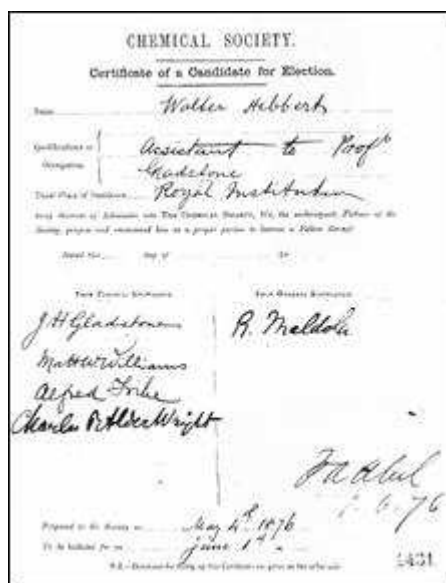 CHEMICAL SOCIETY.
Certificate of a Candidate for Election.
Name Walter Hibbert
Qualifications or
Occupation
Assistant to Prof
Gladstone
Usual Place of Residence Royal Institution
being desirous of Admission into THE CHEMICAL SOCIETY, We, the undersigned, Fellows of the
Society, propose and recommend him as a proper person to become a Fellow thereof.
Dated this day of 18
FROM PERSONAL KNOWLEDGE.
FROM GENERAL KNOWLEDGE.
J H Gladstone
R. Meldola
Matt W Williams
Alfred Tribe
Charles R Alder Wright
F A Abel
1. 6. 76
Proposed to the Society on May 4th 1876
To be balloted for on June 1st